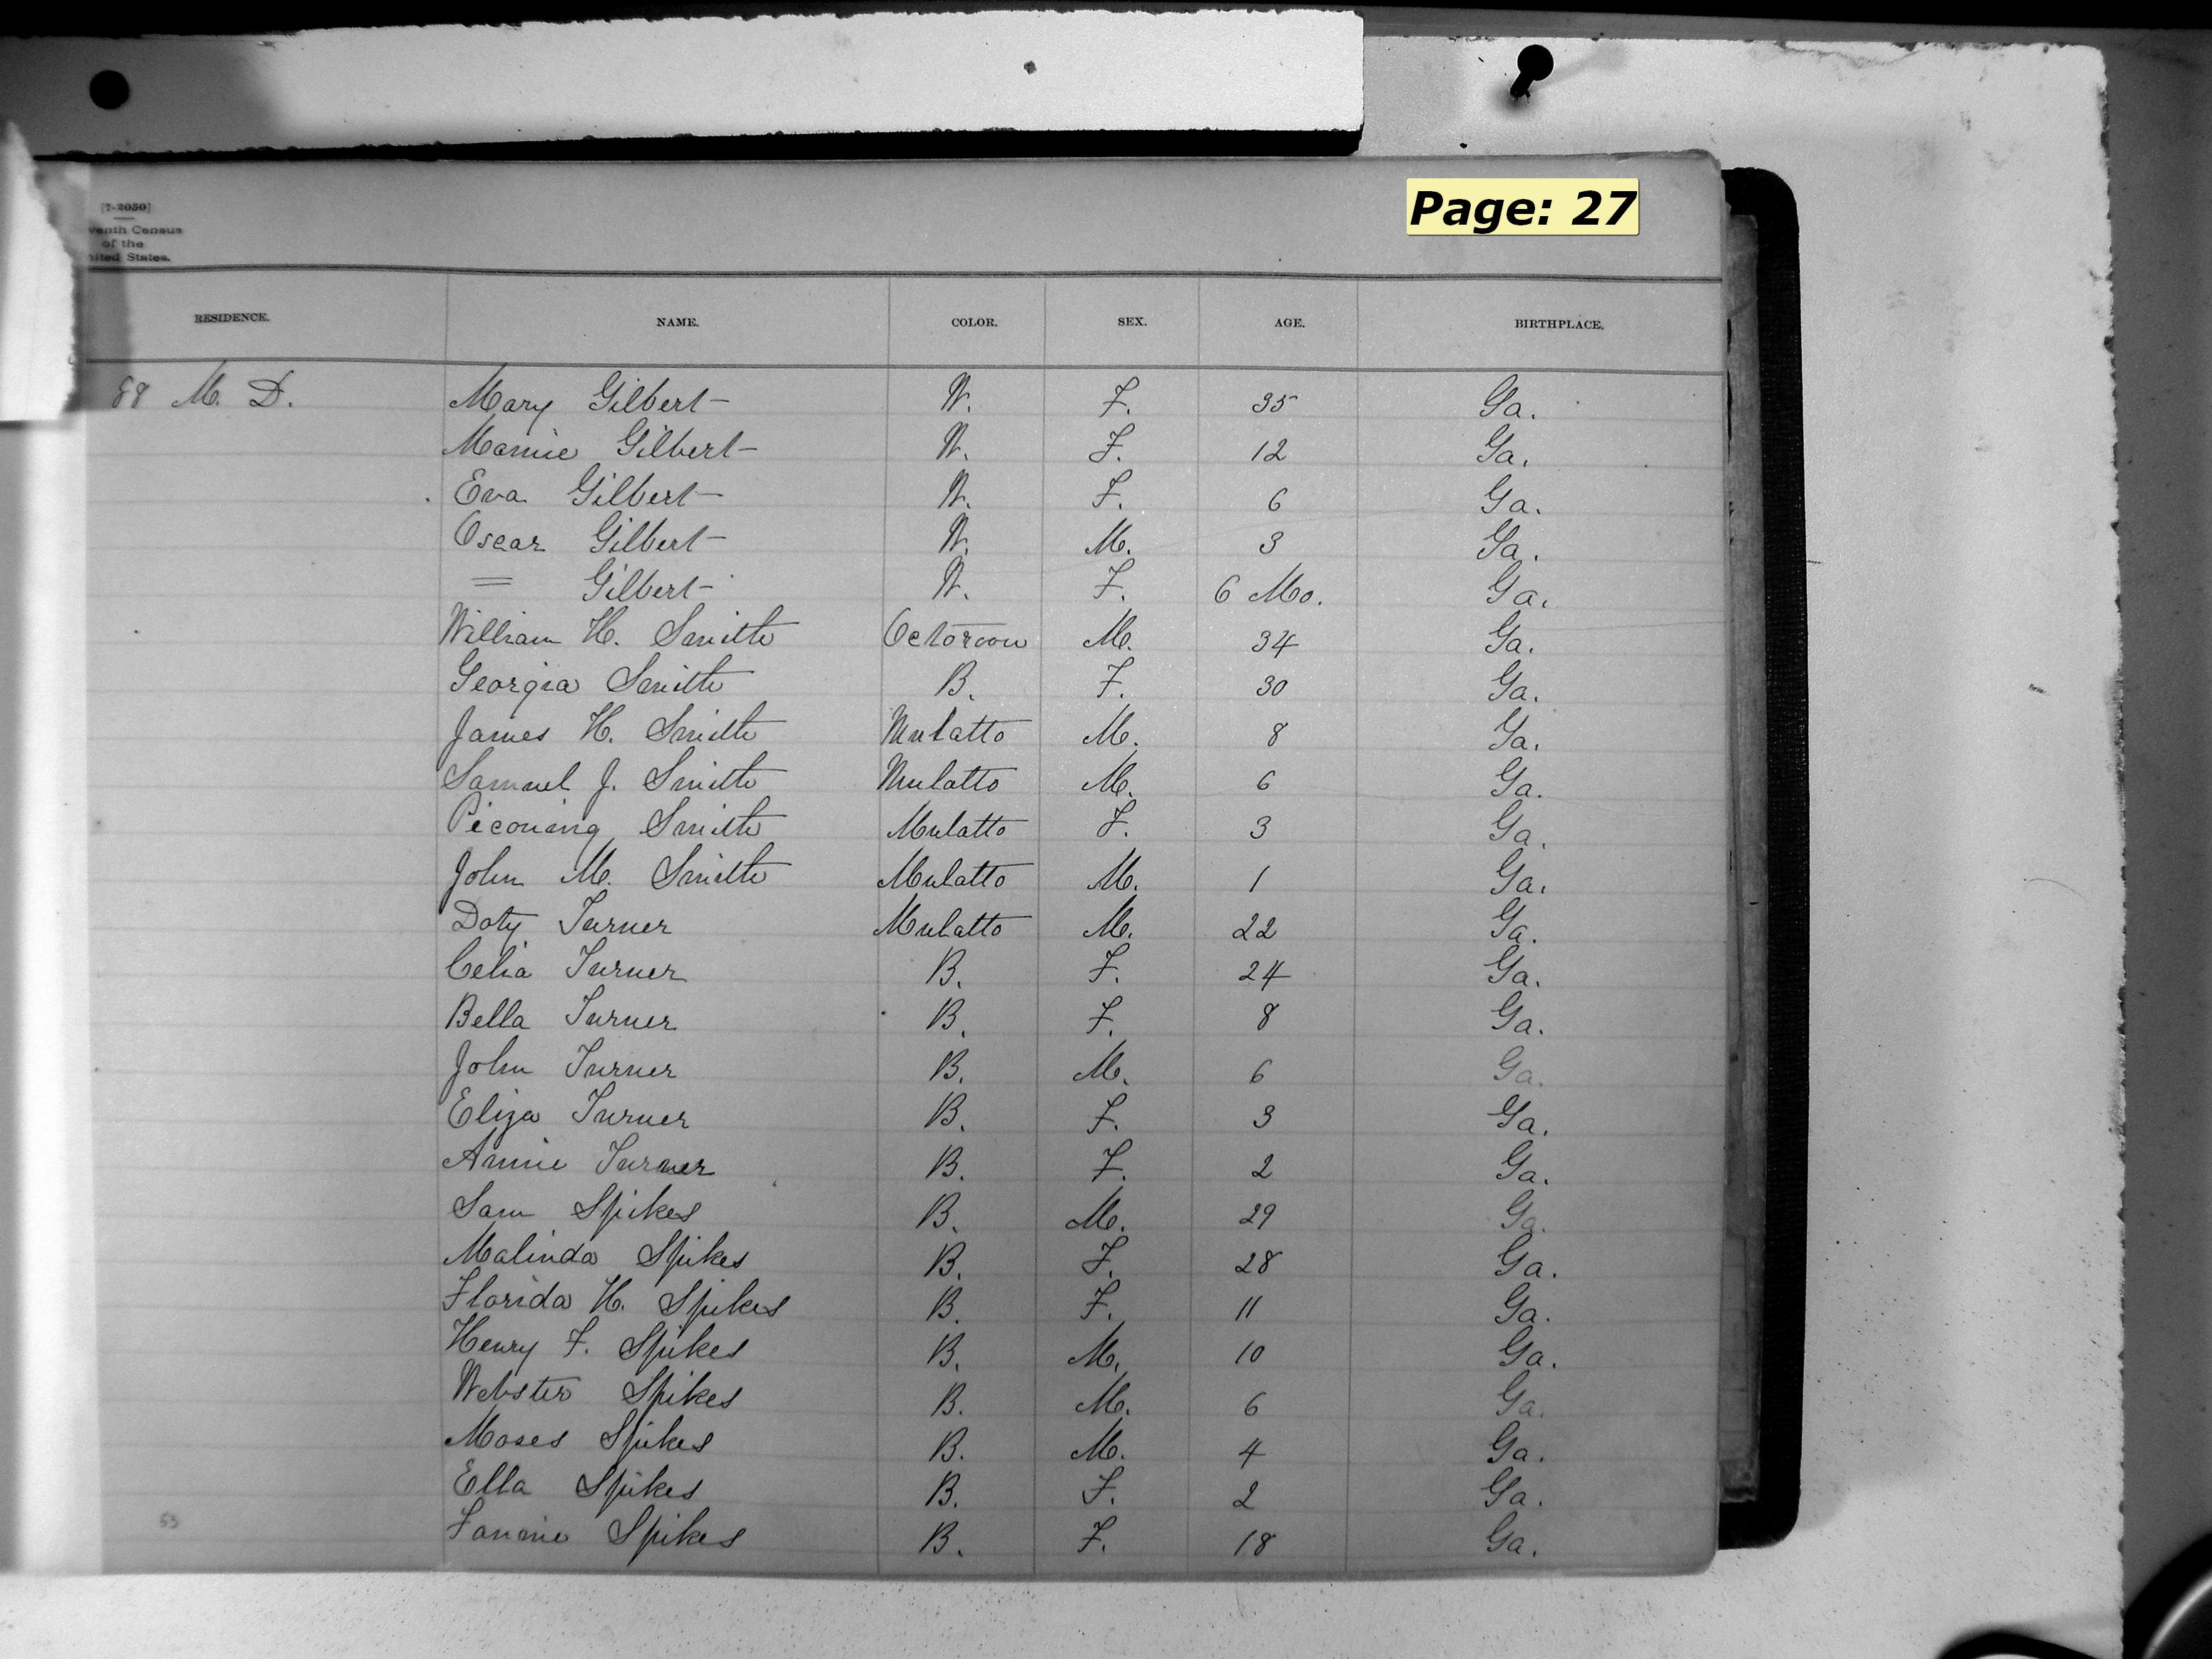 Page: 27
[7-2050]
venth Census
of the
nited States.
RESIDENCE. NAME. COLOR. SEX. AGE. BIRTHPLACE.
88 M. D. Mary Gilbert W. F. 35 Ga.
Mamie Gilbert W. F. 12 Ga.
Eva Gilbert W. F. 6 Ga.
Oscar Gilbert W. M. 3 Ga.
= Gilbert W. F. 6 Mo. Ga.
William H. Smith Octoroon M. 34 Ga.
Georgia Smith B. F. 30 Ga.
James H. Smith Mulatto M. 8 Ga.
Samuel J. Smith Mulatto M. 6 Ga.
Smith Mulatto F. 3 Ga.
John M. Smith Mulatto M. 1 Ga.
Doty Turner Mulatto M. 22 Ga.
Celia Turner B. F. 24 Ga.
Bella Turner B. F. 8 Ga.
John Turner B. M. 6 Ga.
Eliza Turner B. F. 3 Ga.
Annie Turner B. F. 2 Ga.
Sam Spikes B. M. 29 Ga.
Malinda Spikes B. F. 28 Ga.
Florida H. Spikes B. F. 11 Ga.
Henry F. Spikes B. M. 10 Ga.
Webster Spikes B. M. 6 Ga.
Moses Spikes B. M. 4 Ga.
Ella Spikes B. F. 2 Ga.
53 Fannie Spikes B. F. 18 Ga.